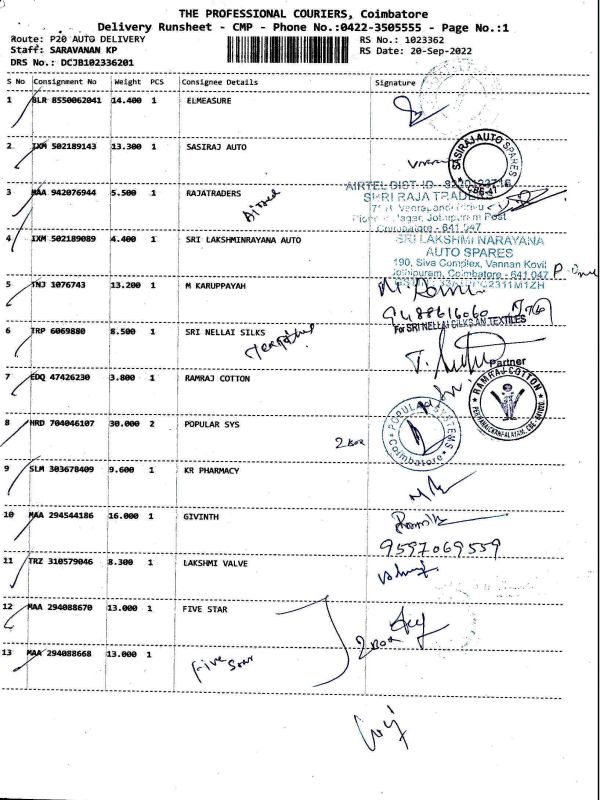 THE PROFESSIONAL COURIERS, Coimbatore
Delivery Runsheet - CMP - Phone No.:0422-3505555 - Page No.:1
Route: P20 AUTO DELIVERY RS No.: 1023362
Staff: SARAVANAN KP RS Date: 20-Sep-2022
DRS No.: DCJB102336201
S No Consignment No Weight PCS Consignee Details Signature
1 BLR 8550062041 14.400 1 ELMEASURE
2 IXM 502189143 13.300 1 SASIRAJ AUTO
SASIRAJ AUTO SPARES
CBE-41
AIRTEL DIST ID
3 MAA 942076944 5.500 1 RAJATRADERS
SHRI RAJA TRADERS
Coimbatore - 641 047
4 IXM 502189089 4.400 1 SRI LAKSHMINRAYANA AUTO
SRI LAKSHMI NARAYANA
AUTO SPARES
190, Siva Complex, Vannan Kovil
Jothipuram, Coimbatore - 641 047
5 TNJ 1076743 13.200 1 M KARUPPAYAH
9488616060
For SRI NELLAI SILKS AN TEXTILES
6 TRP 6069880 8.500 1 SRI NELLAI SILKS
Partner
7 EDQ 47426230 3.800 1 RAMRAJ COTTON
RAMRAJ COTTON
8 HRD 704046107 30.000 2 POPULAR SYS
POPULAR SYSTEMS
Coimbatore
2 Box
9 SLM 303678409 9.600 1 KR PHARMACY
10 MAA 294544186 16.000 1 GIVINTH
9597069559
11 TRZ 310579046 8.300 1 LAKSHMI VALVE
12 MAA 294088670 13.000 1 FIVE STAR
2 Box
13 MAA 294088668 13.000 1
Five Star